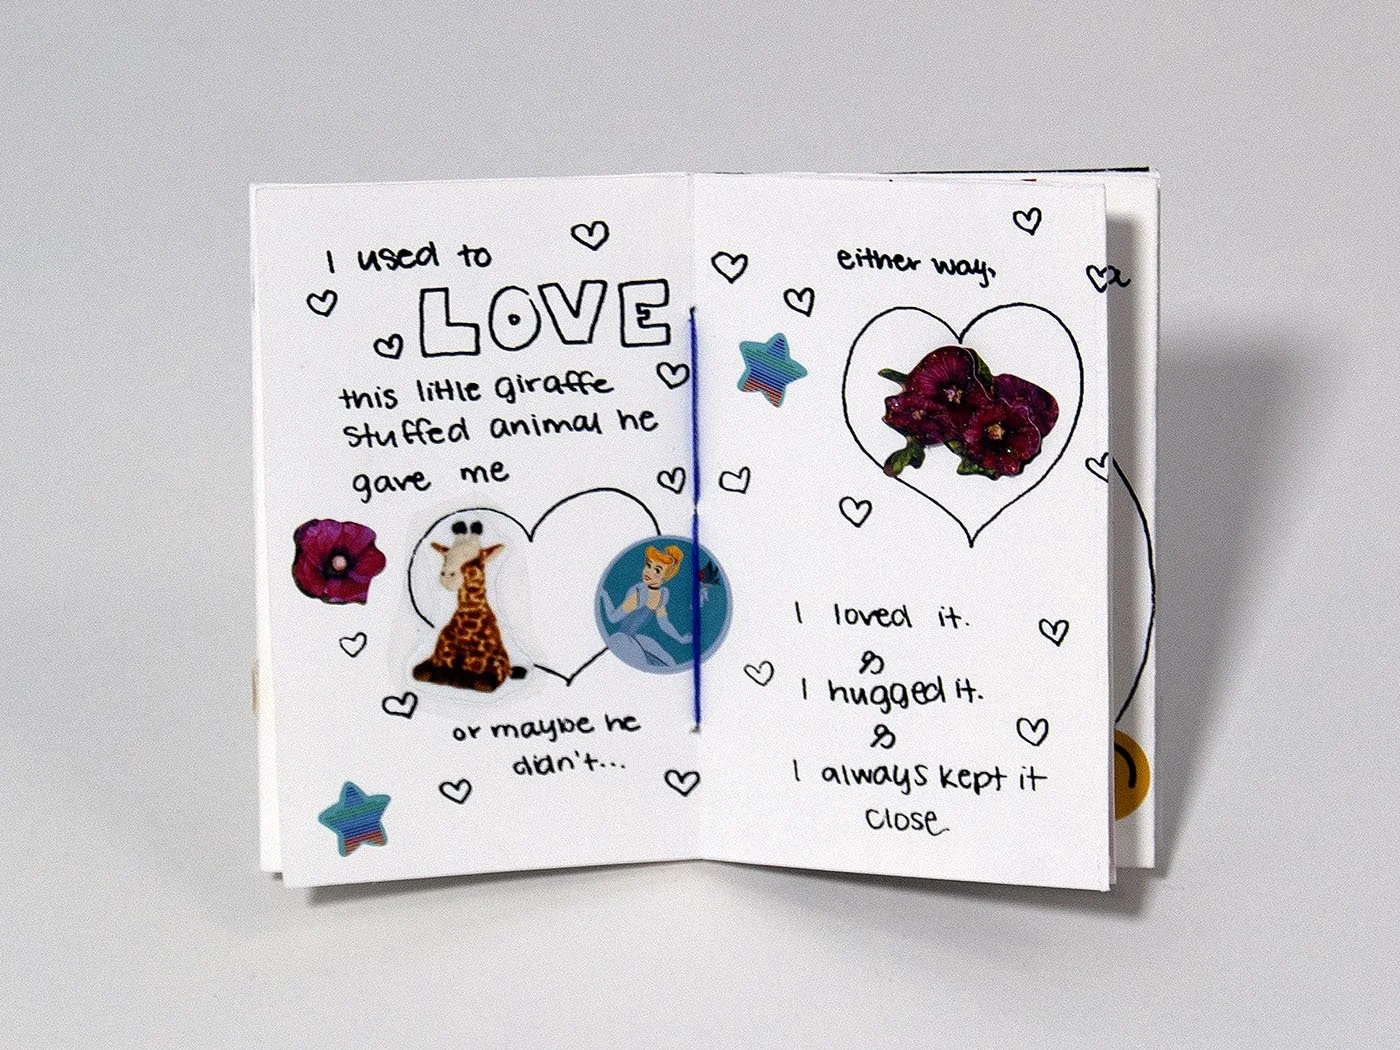 I used to
LOVE
this little giraffe
stuffed animal he
gave me
or maybe he
didn't...
either way,
I loved it.
&
I hugged it.
&
I always kept it
close